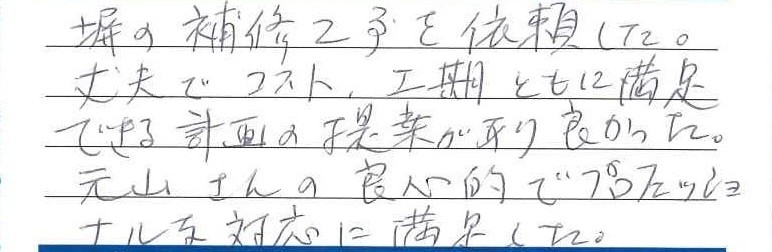 塀の補修工事を依頼した。
丈夫でコスト、工期ともに満足
できる計画の提案が有り良かった。
元山さんの良心的でプロフェッショ
ナルな対応に満足した。